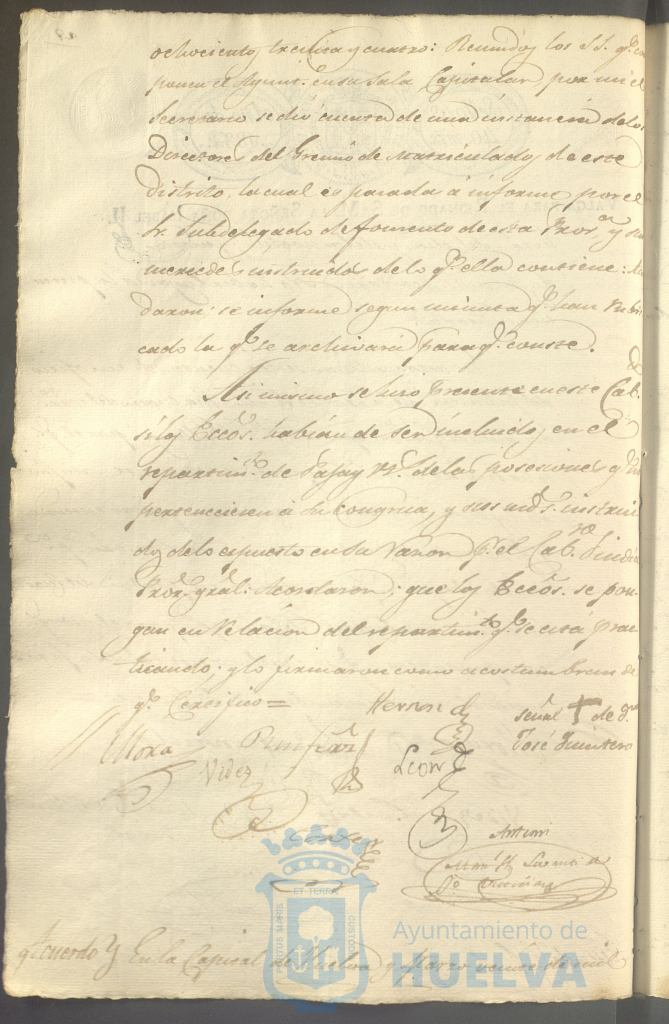 ochocientos treinta y cuatro: Reunidos los S.S. q.e com
ponen el Ayunt.o en su Sala Capitular por mi el
Secretario se dió cuenta de una instancia de los
Directores del Gremio de Matriculados de este
distrito, la cual es pasada á informe por el
Sr. Subdelegado de fomento de esta Prov.a y sus
mercedes instruidos de lo q.e ella contiene: Man
daron: se informe segun minuta q.e han rubri
cado la q.e se archivará para q.e conste.
Asi mismo se hizo presente en este Cab.
si los Eccos. habían de ser incluidos en el
repartim.to de Paja y de las posesiones q.e no
pertenecieren á su Congrua, y sus md.s instrui
dos de lo expuesto en su razon p.r el Cab.ro Sindico
Pror. gral: Acordaron: que los Eccos. se pon
gan en relacion del repartim.to q.e se está prac
ticando; y lo firmaron como acostumbran de
q.e Certifico =
Mora
Hernand
señal + de D.n
José Quintero
Videz
Leon
Antoni
Acuerdo } En la Capital de Huelva y Marzo veinte de mil
ET TERRA
CUSTODIA
Ayuntamiento de
HUELVA